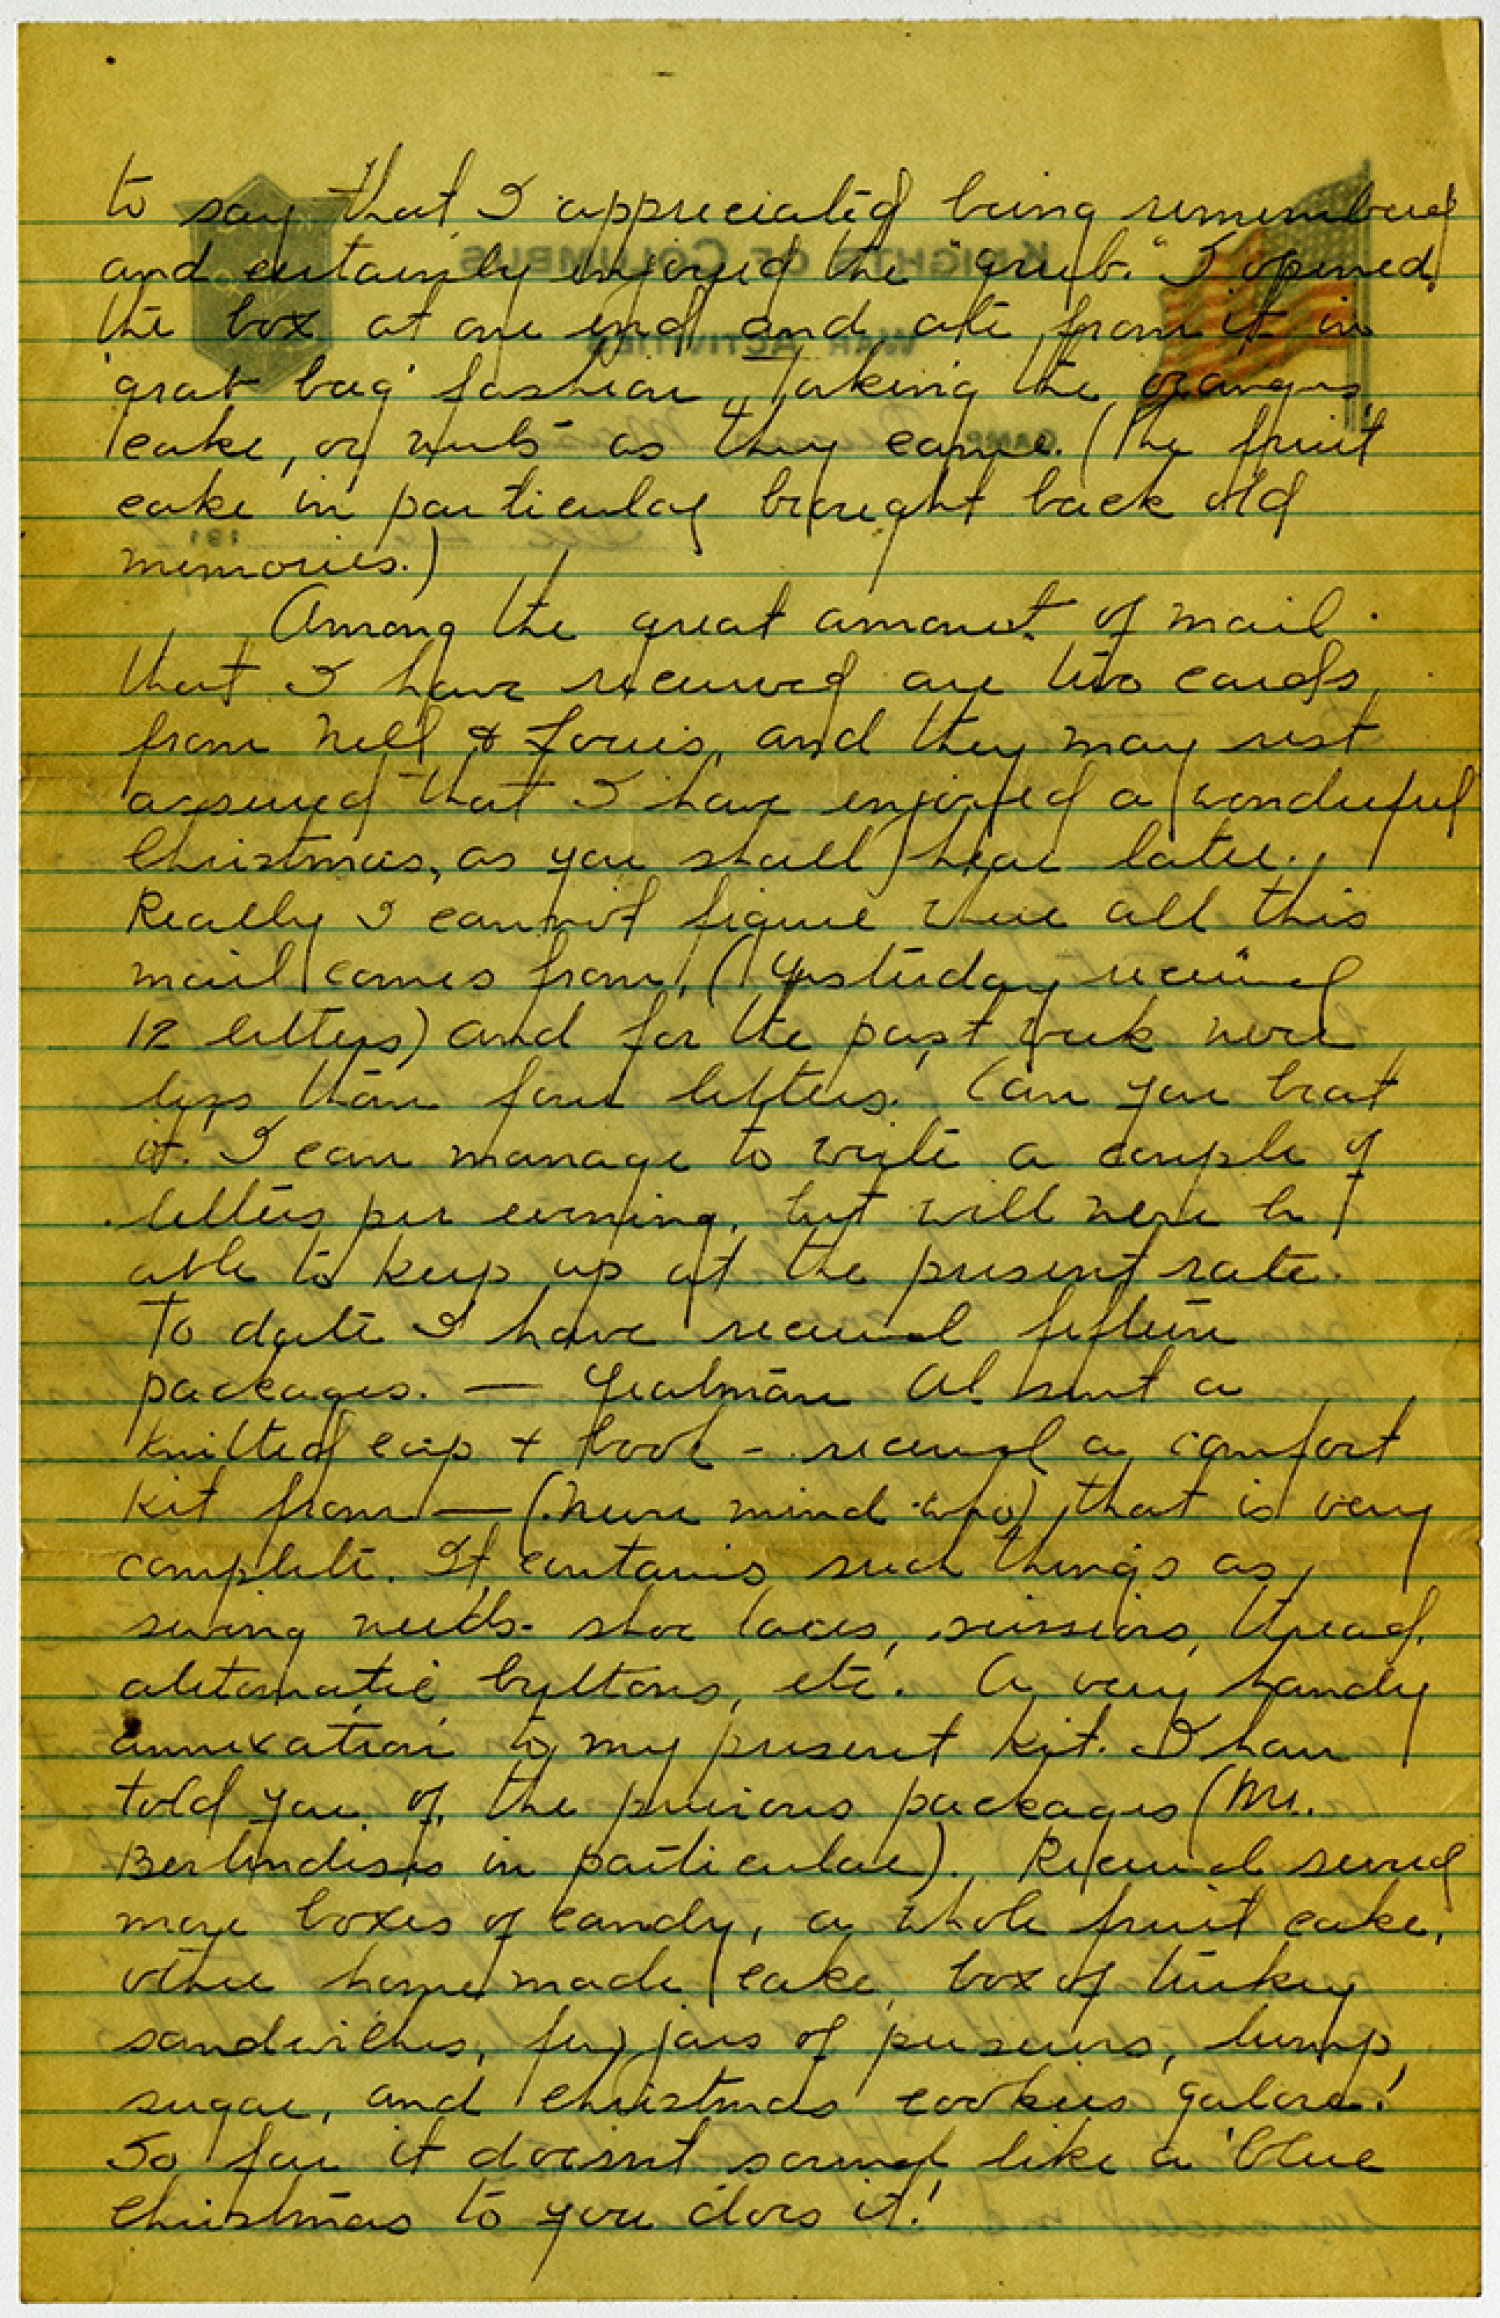 to say that I appreciated being remembered
and certainly enjoyed the "grub." I opened
the box at one end and ate from it in
'grab bag' fashion, taking the oranges,
cake, or nuts as they came. (The fruit
cake in particular brought back old
memories.)
Among the great amount of mail
that I have received are two cards
from Nell & Louis, and they may rest
assured that I have enjoyed a wonderful
Christmas, as you shall hear later.
Really I cannot figure where all this
mail comes from, (Yesterday received
12 letters) and for the past week never
less than four letters. Can you beat
it. I can manage to write a couple of
letters per evening, but will never be
able to keep up at the present rate.
To date I have received fifteen
packages. — Yeatman Al. sent a
knitted cap + book - received a comfort
kit from — (Never mind who) that is very
complete. It contains such things as
sewing needs - shoe laces, scissors, thread,
automatic buttons, etc. A very handy
annexation to my present kit. I have
told you of the previous packages (Mr.
Berlindis's in particular). Received several
more boxes of candy, a whole fruit cake,
other home made cake, box of turkey
sandwiches, few jars of preserves, lump
sugar, and Christmas cookies galore!
So far it doesn't sound like a 'blue
Christmas to you does it!
KNIGHTS OF COLUMBUS
WAR ACTIVITIES
CAMP
191